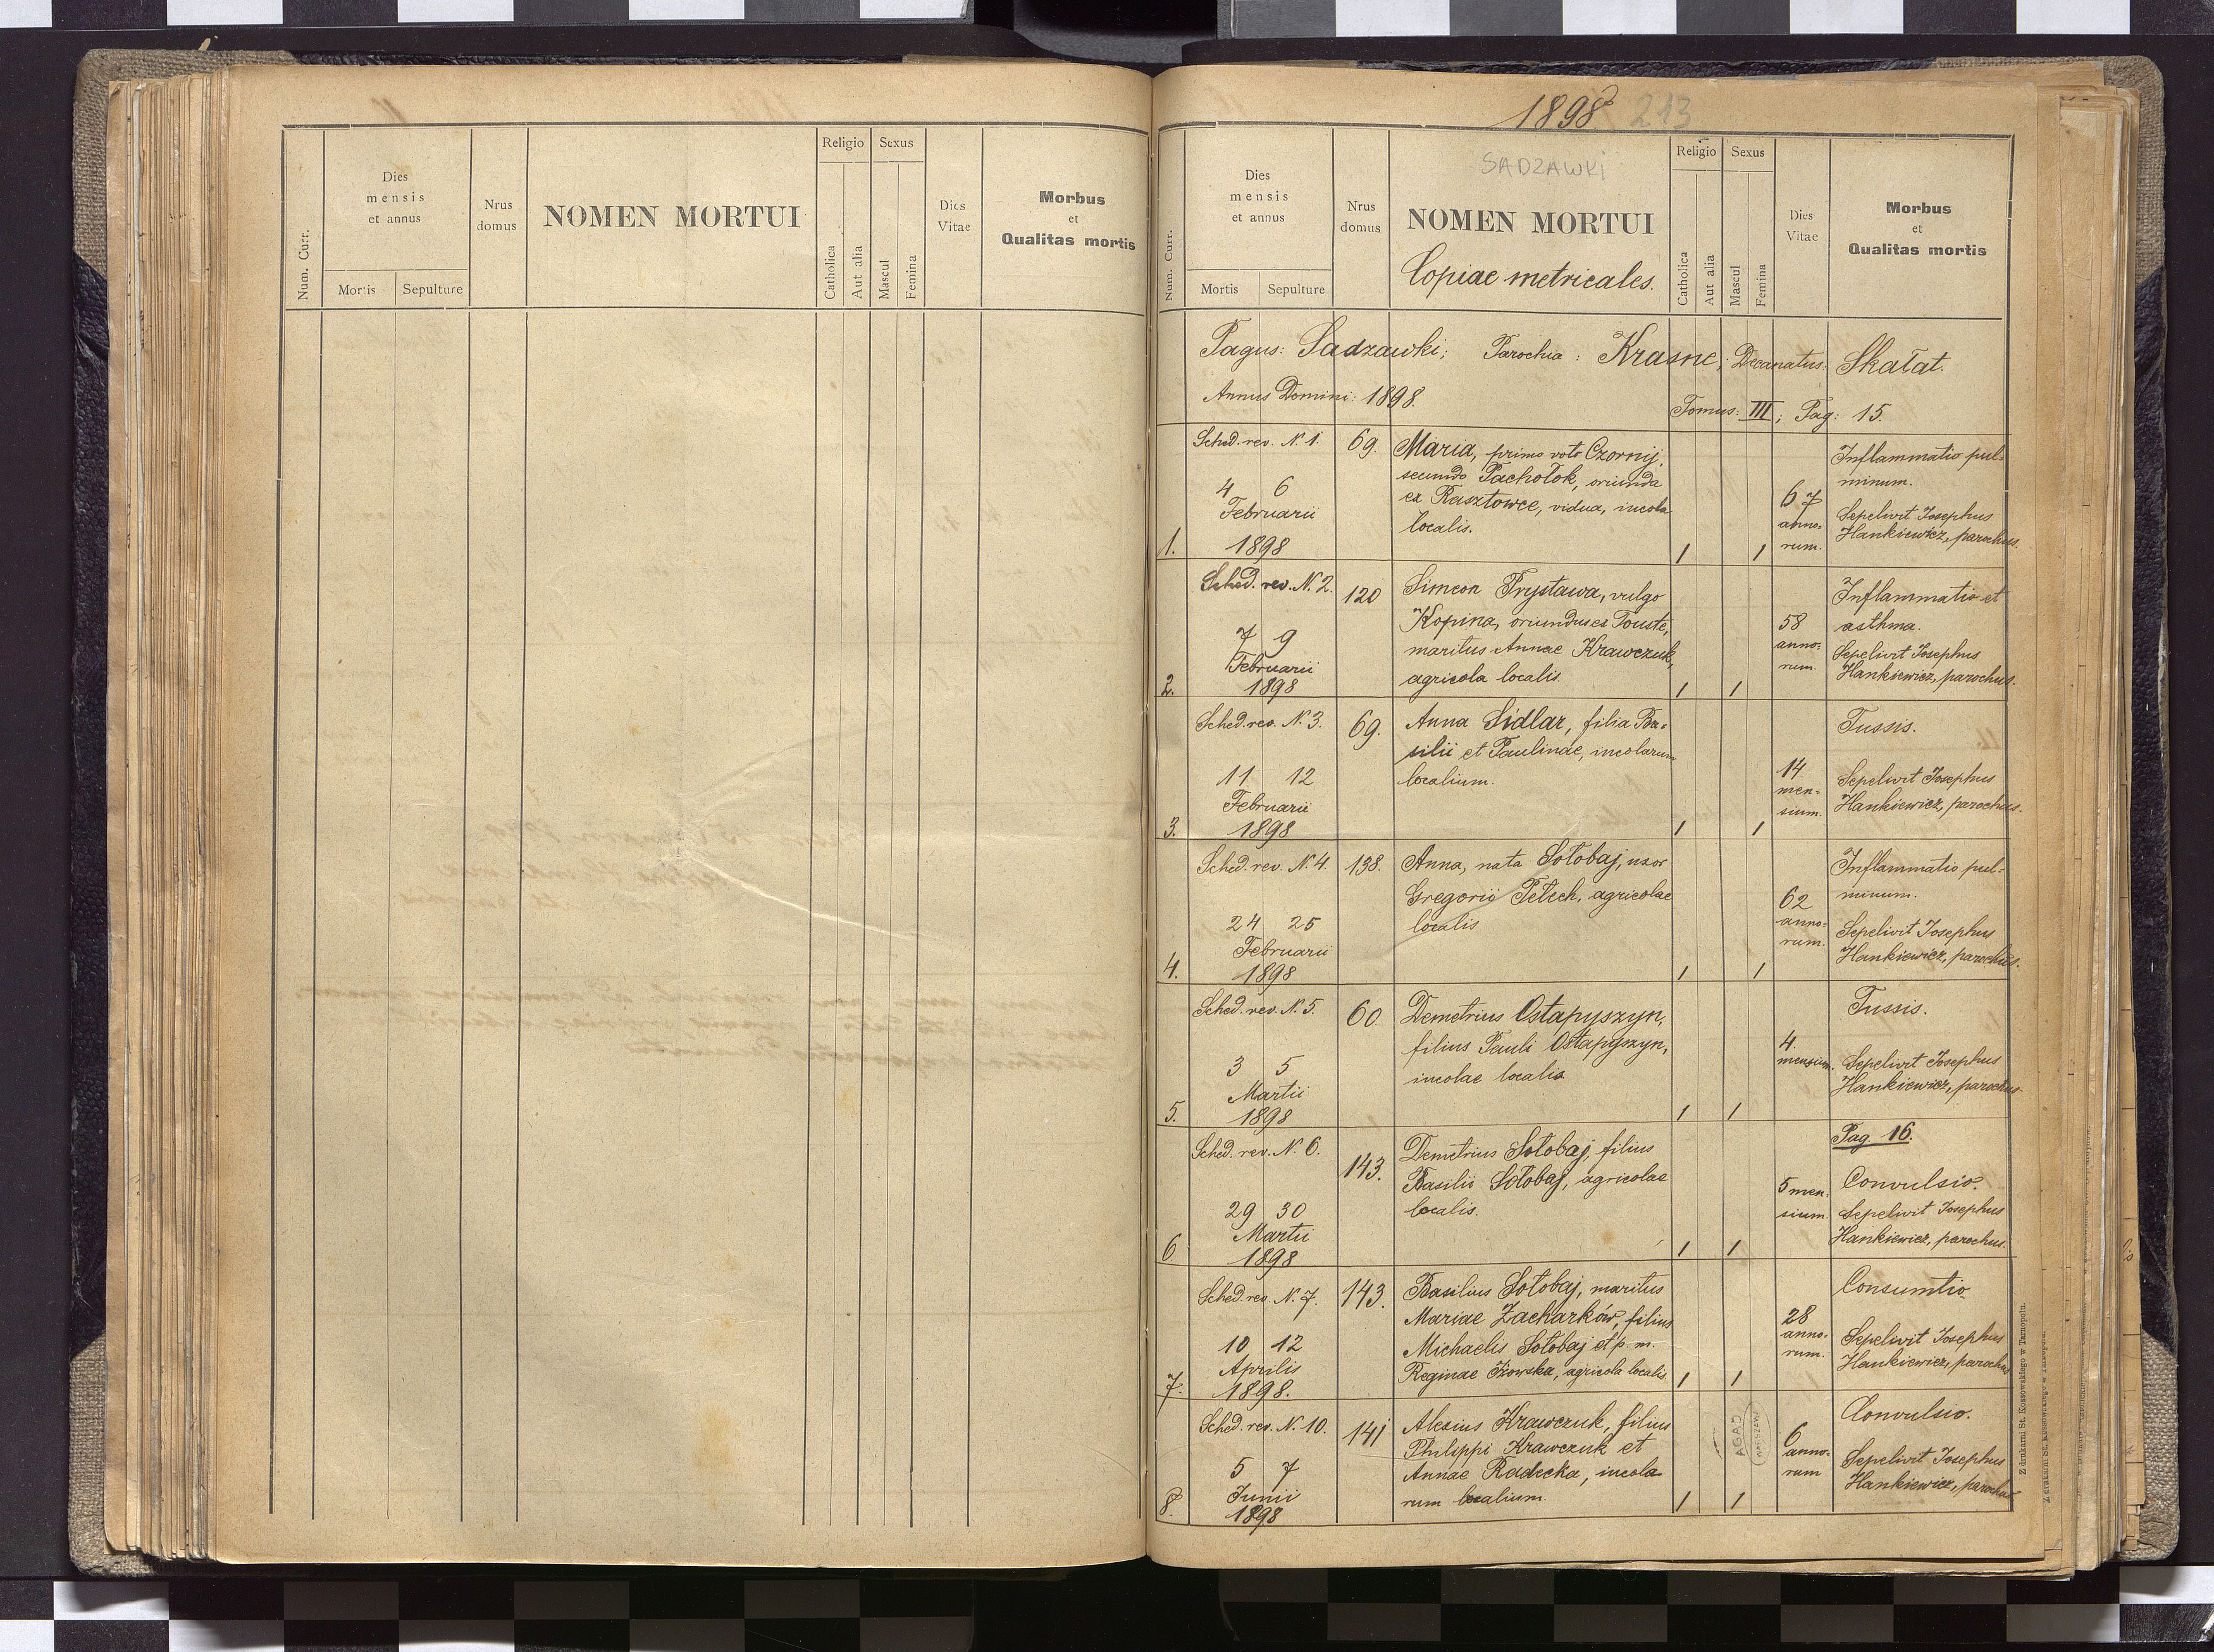 Num. Curr.
Dies
mensis
et annus
Mortis
Sepulture
Nrus
domus
NOMEN MORTUI
Religio
Catholica
Aut alia
Sexus
Mascul
Femina
Dies
Vitae
Morbus
et
Qualitas mortis
1898 213
SADZAWKI
Num. Curr.
Dies
mensis
et annus
Mortis
Sepulture
Nrus
domus
NOMEN MORTUI
Copiae metricales.
Religio
Catholica
Aut alia
Sexus
Mascul
Femina
Dies
Vitae
Morbus
et
Qualitas mortis
Pagus: Sadzawki; Parochia: Krasne; Decanatus: Skałat.
Annus Domini: 1898.
Tomus: III; Pag: 15.
1.
Sched. rev. N. 1.
4 6
Februarii
1898
69.
Maria, primo voto Czornij,
secundo Pachołok, oriunda
ex Rasztowce, vidua, incola
localis.
1 1
67
anno-
rum.
Inflammatio pul-
minum.
Sepelivit Josephus
Hankiewicz, parochus.
2.
Sched. rev. N. 2.
7 9
Februarii
1898
120
Simeon Prystawa, vulgo
Kopina, oriundus ex Touste,
maritus Annae Krawczuk,
agricola localis.
1 1
58
anno-
rum.
Inflammatio et
asthma.
Sepelivit Josephus
Hankiewicz, parochus.
3.
Sched. rev. N. 3.
11 12
Februarii
1898
69.
Anna Sidlar, filia Ba-
silii et Paulinae, incolarum
localium.
1 1
14
men-
sium.
Tussis.
Sepelivit Josephus
Hankiewicz, parochus.
4.
Sched. rev. N. 4.
24 25
Februarii
1898
138.
Anna, nata Sołobaj, uxor
Gregorii Petech, agricolae
localis
1 1
62
anno-
rum.
Inflammatio pul-
minum.
Sepelivit Josephus
Hankiewicz, parochus.
5.
Sched. rev. N. 5.
3 5
Martii
1898
60
Demetrius Ostapyszyn,
filius Pauli Ostapyszyn,
incolae localis
1 1
4.
mensium.
Tussis.
Sepelivit Josephus
Hankiewicz, parochus.
6
Sched. rev. N. 6.
29 30
Martii
1898
143.
Demetrius Sołobaj, filius
Basilii Sołobaj, agricolae
localis.
1 1
5 men-
sium.
Pag. 16.
Convulsio.
Sepelivit Josephus
Hankiewicz, parochus.
7.
Sched. rev. N. 7.
10 12
Aprilis
1898.
143.
Basilius Sołobaj, maritus
Mariae Zacharków, filius
Michaelis Sołobaj et p. m.
Reginae Iżowska, agricola localis
1 1
28
anno-
rum.
Consumtio.
Sepelivit Josephus
Hankiewicz, parochus
8.
Sched. rev. N. 10.
5 7
Junii
1898
141
Alexius Krawczuk, filius
Philippi Krawczuk et
Annae Radecka, incola-
rum localium.
1 1
6
anno-
rum
Convulsio.
Sepelivit Josephus
Hankiewicz, parochus
AGAD
WARSZAWA
Z drukarni St. Kossowskiego w Tarnopolu.